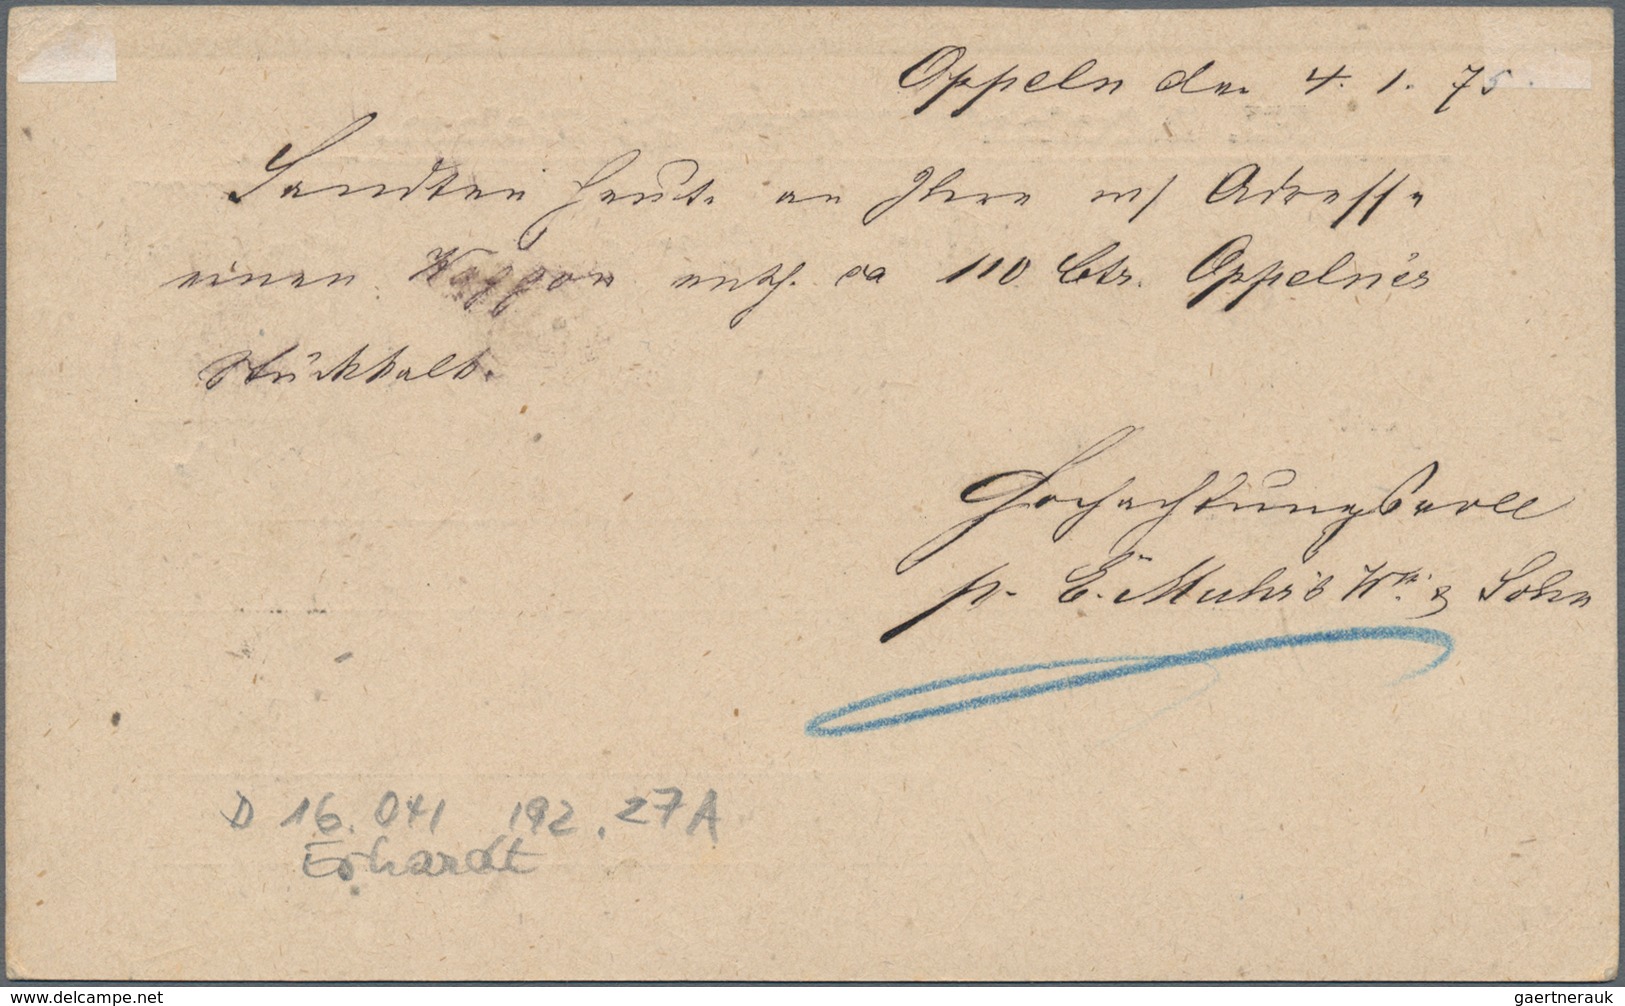 Oppeln den 4. 1. 75.
Sandten heute an Ihre w/ Adresse
einen Waggon enth. ca 110 Ctr. Oppelner
Stückkalk.
Hochachtungsvoll
p. E. Muhr's Ww. & Sohn
D 16.041 192.27A
Erhardt
www.delcampe.net
gaertnerauk